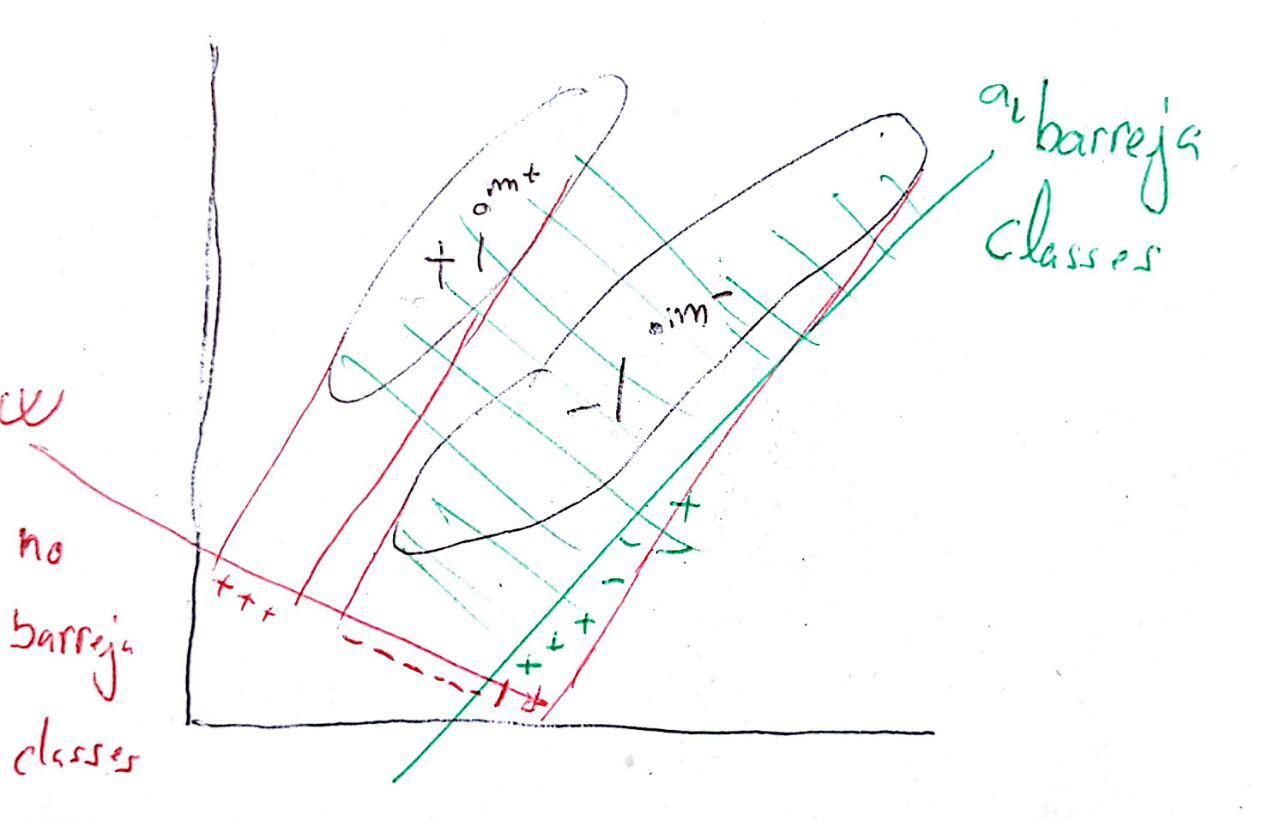 barreja
classes
m+
+1
m-
-1
w
no
barreja
classes
+ + +
- - - - - -
+
-
-
+
+
+